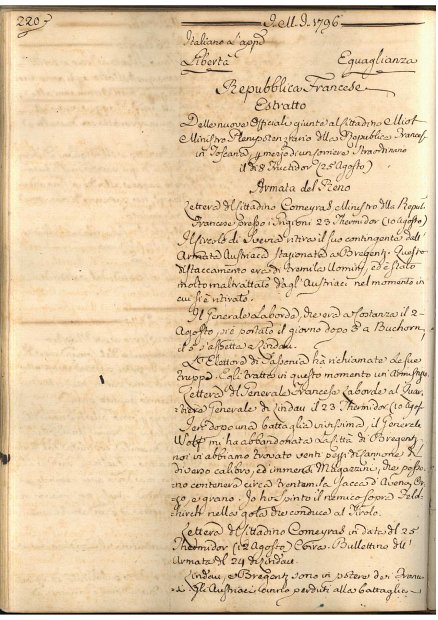 220
1796
Italiano l'app.
Libertà Eguaglianza
Repubblica Francese
Estratto
Delle nuove Officiali giunte al Cittadino Miot
Ministro Plenipotenziario della Repubblica Frances.
in Toscana, per mezzo d'un corriere Straordinario
il dì 8 Fructidor (25 Agosto)
Armata del Reno
Lettera del Cittadino Comeyras Ministro della Repub.
Francese presso i Grigioni 23 Thermidor (10 Agosto)
Il Circolo di Svevia ritira il suo contingente dall'
Armata Austriaca stazionata a Bregentz. Questo
distaccamento era di tremila Uomini, ed è stato
molto maltrattato dagl'Austriaci nel momento in
cui si è ritirato.
Il Generale Laborde, che era a Costanza il 2
Agosto, si è portato il giorno dopo a Buchorn,
e s'aspetta a Lindau.
L'Elettore di Sassonia ha richiamate le sue
truppe. Egli tratta in questo momento un'Armistizio.
Lettera del Generale Francese Laborde al Quar-
tiere Generale di Lindau il 23 Thermidor (10 Agost.
Jeri dopo una battaglia vivissima, il Generale
Wolff mi ha abbandonata la Città di Bregentz,
noi vi abbiamo trovato venti pezzi di Cannone di
diverso calibro, ed immensi Magazzini, che posso-
no contenere circa trentamila sacca d'Avena, Or-
zo, e grano. Io ho spinto il nemico sopra Feld-
kirch nella gola che conduce al Tirolo.
Lettera del Cittadino Comeyras in data del 25
Thermidor (12 Agosto) Coira. Bullettino dell'
Armata del 24 di Lindau.
Lindau, e Bregentz sono in potere dei Franc.
gli Austriaci perduti alla battaglia